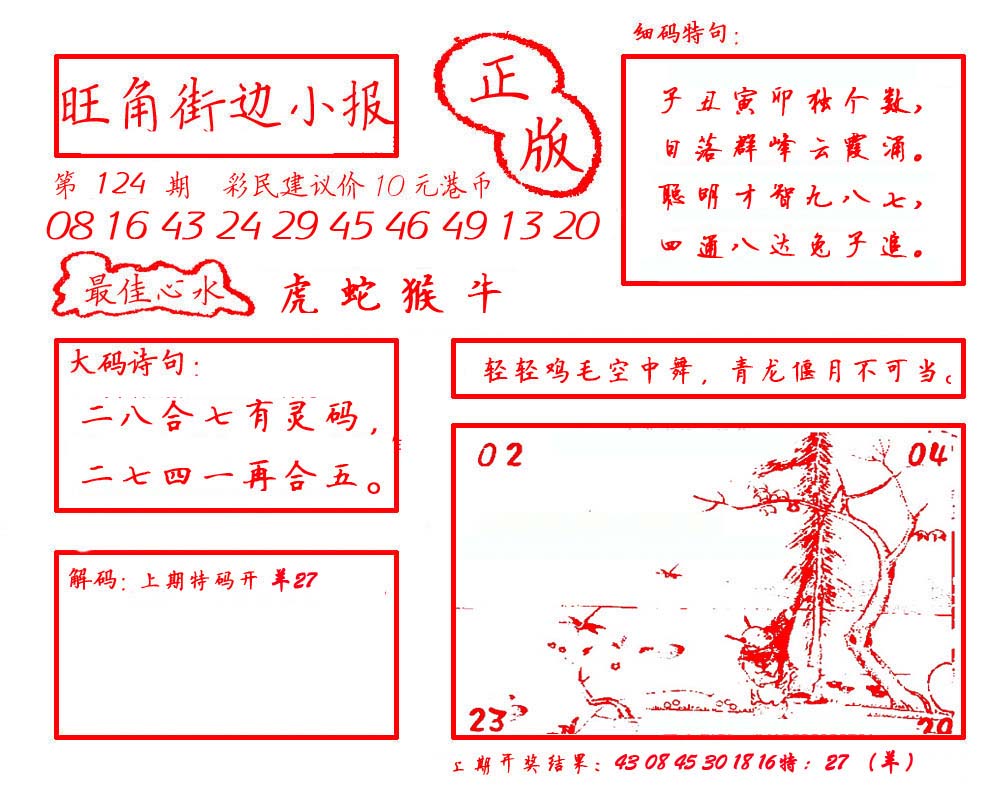 旺角街边小报
正版
第 124 期 彩民建议价10元港币
08 16 43 24 29 45 46 49 13 20
最佳心水 虎蛇猴牛
细码特句：
子丑寅卯独个数，
日落群峰云霞涌。
聪明才智九八七，
四通八达兔子追。
大码诗句：
二八合七有灵码，
二七四一再合五。
轻轻鸡毛空中舞，青龙偃月不可当。
02 04
23
解码：上期特码开 羊27
上期开奖结果：43 08 45 30 18 16特：27 （羊）